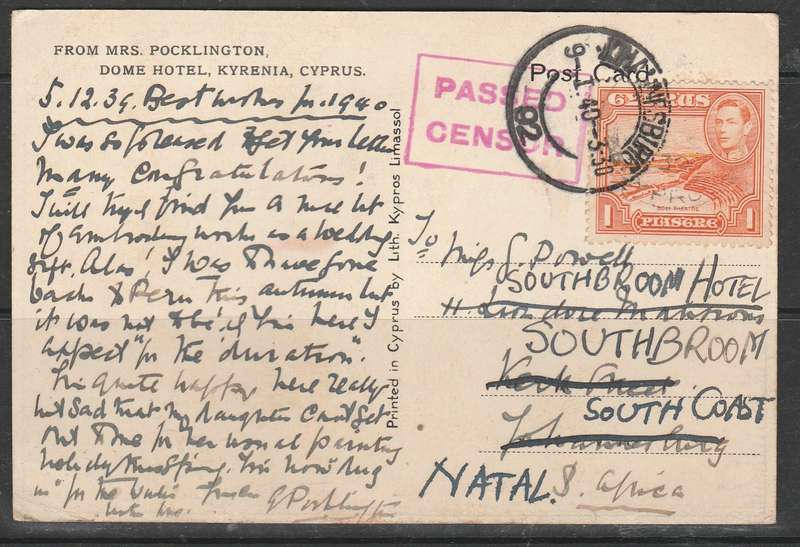 FROM MRS. POCKLINGTON,
DOME HOTEL, KYRENIA, CYPRUS.
5.12.39. Best wishes for 1940
I was so pleased to get your letter
Many Congratulations!
I will try & find you a nice bit
of embroidery work as a wedding
gift. Alas! I was to have gone
back to Peru this autumn but
it was not to be & I'm here I
expect "for the duration".
I'm quite happy here really
but sad that my daughter can't get
out to me for her usual painting
holiday this Spring. I'm now "dug
in" for the
G Pocklington
Printed in Cyprus by Lith. Kypros Limassol
PASSED
CENSOR
Post Card
JOHANNESBURG
9 40-3.30
92
CYPRUS
1 PIASTRE 1
To Miss G. Powell
SOUTHBROOM HOTEL
Mansions
SOUTHBROOM
Kerk Street
SOUTH COAST
Johannesburg
NATAL. S. Africa